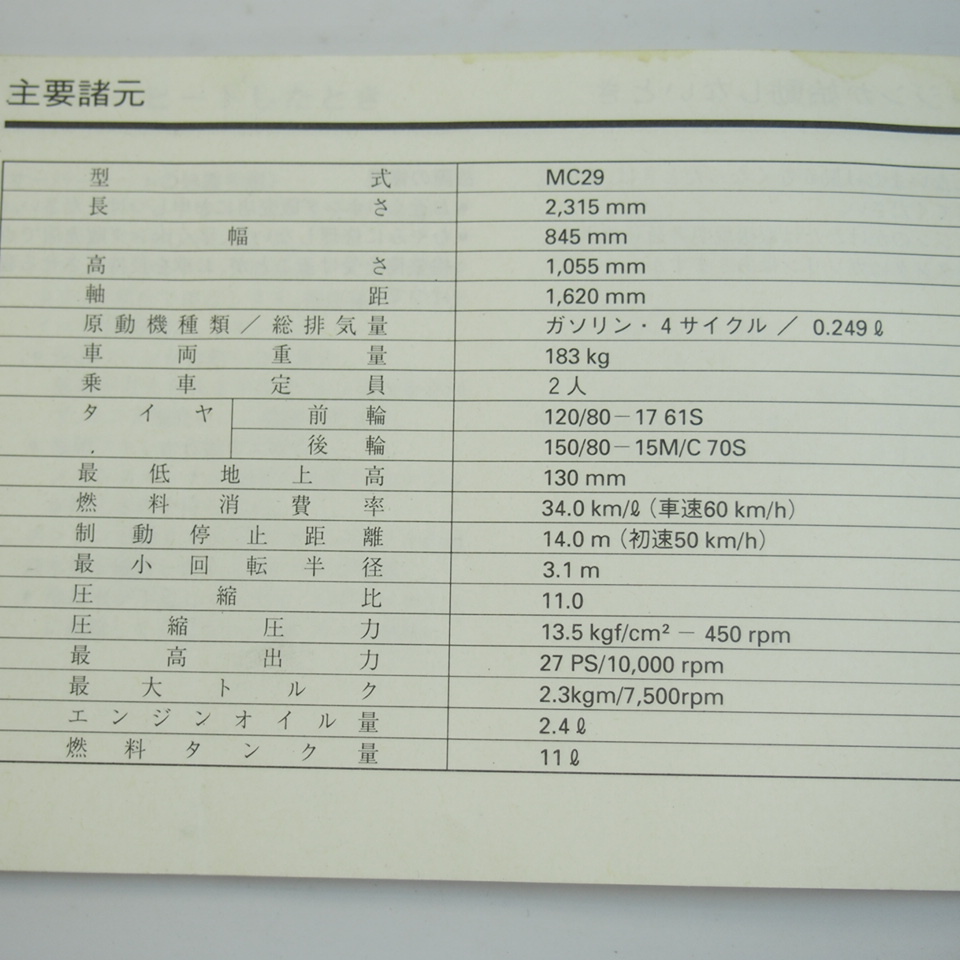 主要諸元
型式 MC29
長さ 2,315 mm
幅 845 mm
高さ 1,055 mm
軸距 1,620 mm
原動機種類／総排気量 ガソリン・4サイクル／ 0.249ℓ
車両重量 183 kg
乗車定員 2人
タイヤ 前輪 120/80－17 61S
後輪 150/80－15M/C 70S
最低地上高 130 mm
燃料消費率 34.0 km/ℓ（車速60 km/h）
制動停止距離 14.0 m（初速50 km/h）
最小回転半径 3.1 m
圧縮比 11.0
圧縮圧力 13.5 kgf/cm² － 450 rpm
最高出力 27 PS/10,000 rpm
最大トルク 2.3kgm/7,500rpm
エンジンオイル量 2.4ℓ
燃料タンク量 11ℓ